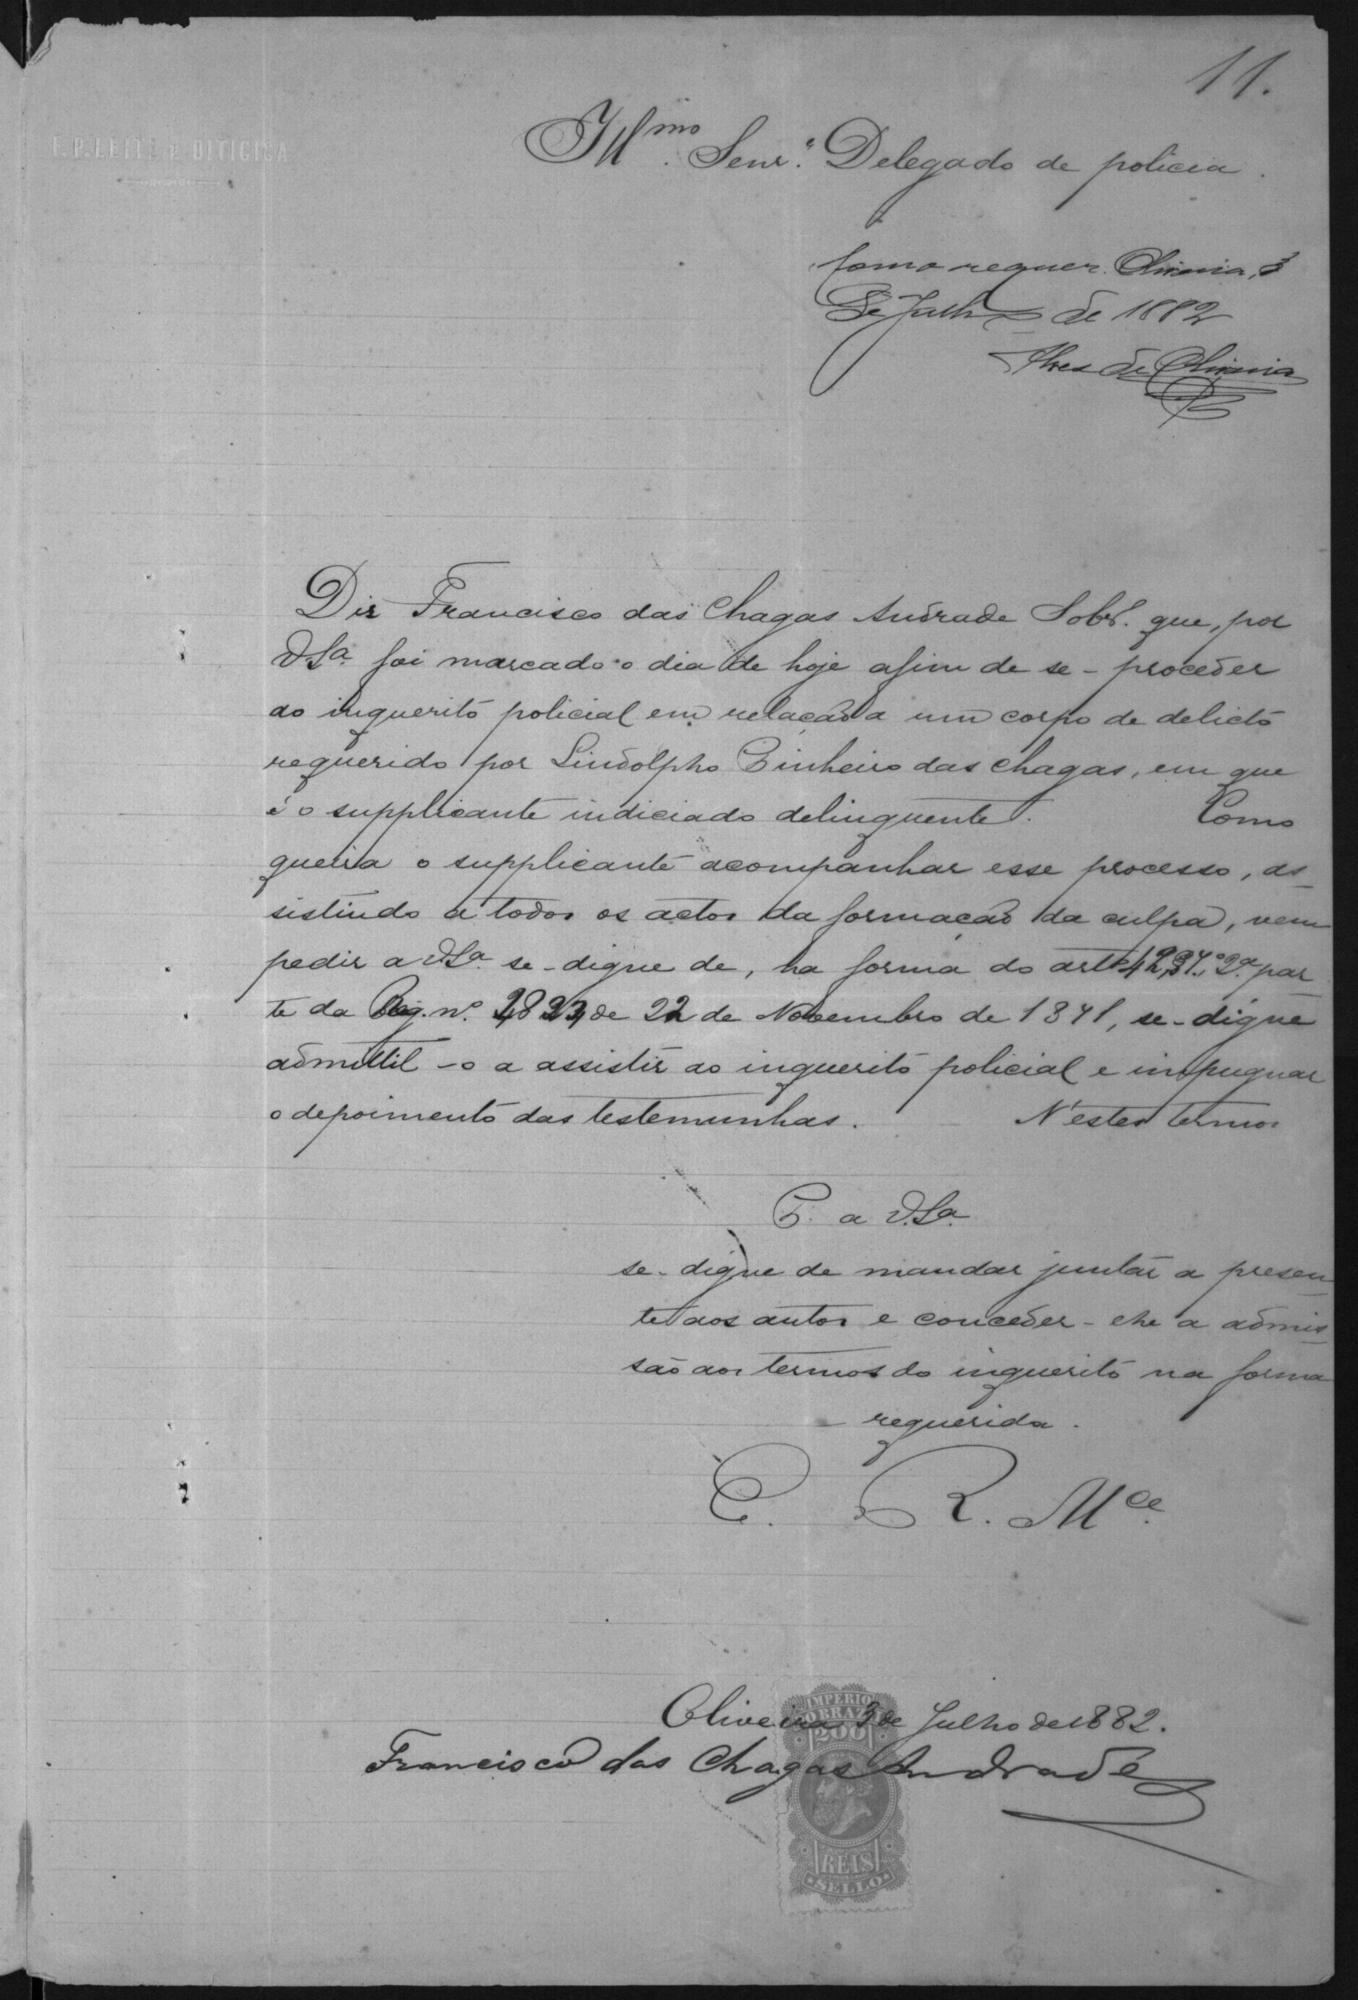 11.
F.P. LEITE e OITICICA
Illmo. Senr. Delegado de policia.
Como requer. Oliveira, 3
de Julho de 1882
Alves de Oliveira
Diz Francisco das Chagas Andrade Sobr.º que, por
V.Sa. foi marcado o dia de hoje afim de se-proceder
ao inquerito policial em relação a um corpo de delicto
requerido por Lindolpho Pinheiro das Chagas, em que
é o supplicante indiciado delinquente. Como
queira o supplicante acompanhar esse processo, as-
sistindo a todos os actos da formação da culpa, vem
pedir a V.Sa. se-digne de, na forma do art. 2.ª par
te da Reg. n.º de 22 de Novembro de 1871, se-digne
admittil-o a assistir ao inquerito policial e impugnar
o depoimento das testemunhas. N'estes termos
P. a V.Sa.
se-digne de mandar juntar a presen-
te aos autos e conceder-lhe a admis-
são aos termos do inquerito na forma
requerida.
E. R. Mce.
Oliveira 3 de Julho de 1882.
Francisco das Chagas Andrade
IMPERIO
DO BRAZIL
200
REIS
SELLO